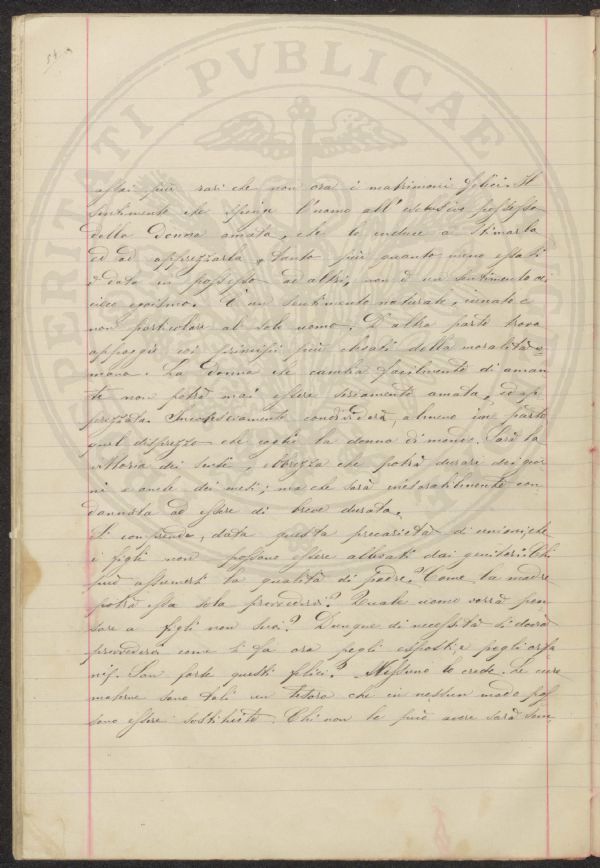 54.
PROSPERITATI PVBLICAE
assai più rari che non ora i matrimoni felici. Il
sentimento che spinge l'uomo all'esclusivo possesso
della donna amata, che lo induce a stimarla
ed ad apprezzarla, tanto più quanto meno essa si
è data in possesso ad altri, non è un sentimento di
cieco egoismo. È un sentimento naturale, innato e
non particolare al solo uomo. D'altra parte trova
appoggio coi principii più elevati della moralità u-
mana. La donna che cambia facilmente di aman
te non potrà mai essere seriamente amata, ed ap
prezzata. Inconsciamente condividerà, almeno in parte
quel disprezzo che coglie la donna di mondo. Sarà la
vittoria dei sensi, ebbrezza che potrà durare dei gior
ni e anche dei mesi; ma che sarà inesorabilmente con
dannata ad essere di breve durata.
Si comprende, data questa precarietà di unioni, che
i figli non possono essere allevati dai genitori. Chi
può assumersi la qualità di padre? Come la madre
potrà essa sola provvedervi? Quale uomo vorrà pen
sare a figli non suoi? Dunque di necessità si dovrà
provvedervi come si fa ora pegli esposti, e pegli orfa
ni. Son forse questi felici? Nessuno lo crede. Le cure
materne sono tali un tesoro che in nessun modo pos
sono essere sostituite. Chi non le può avere sarà sem